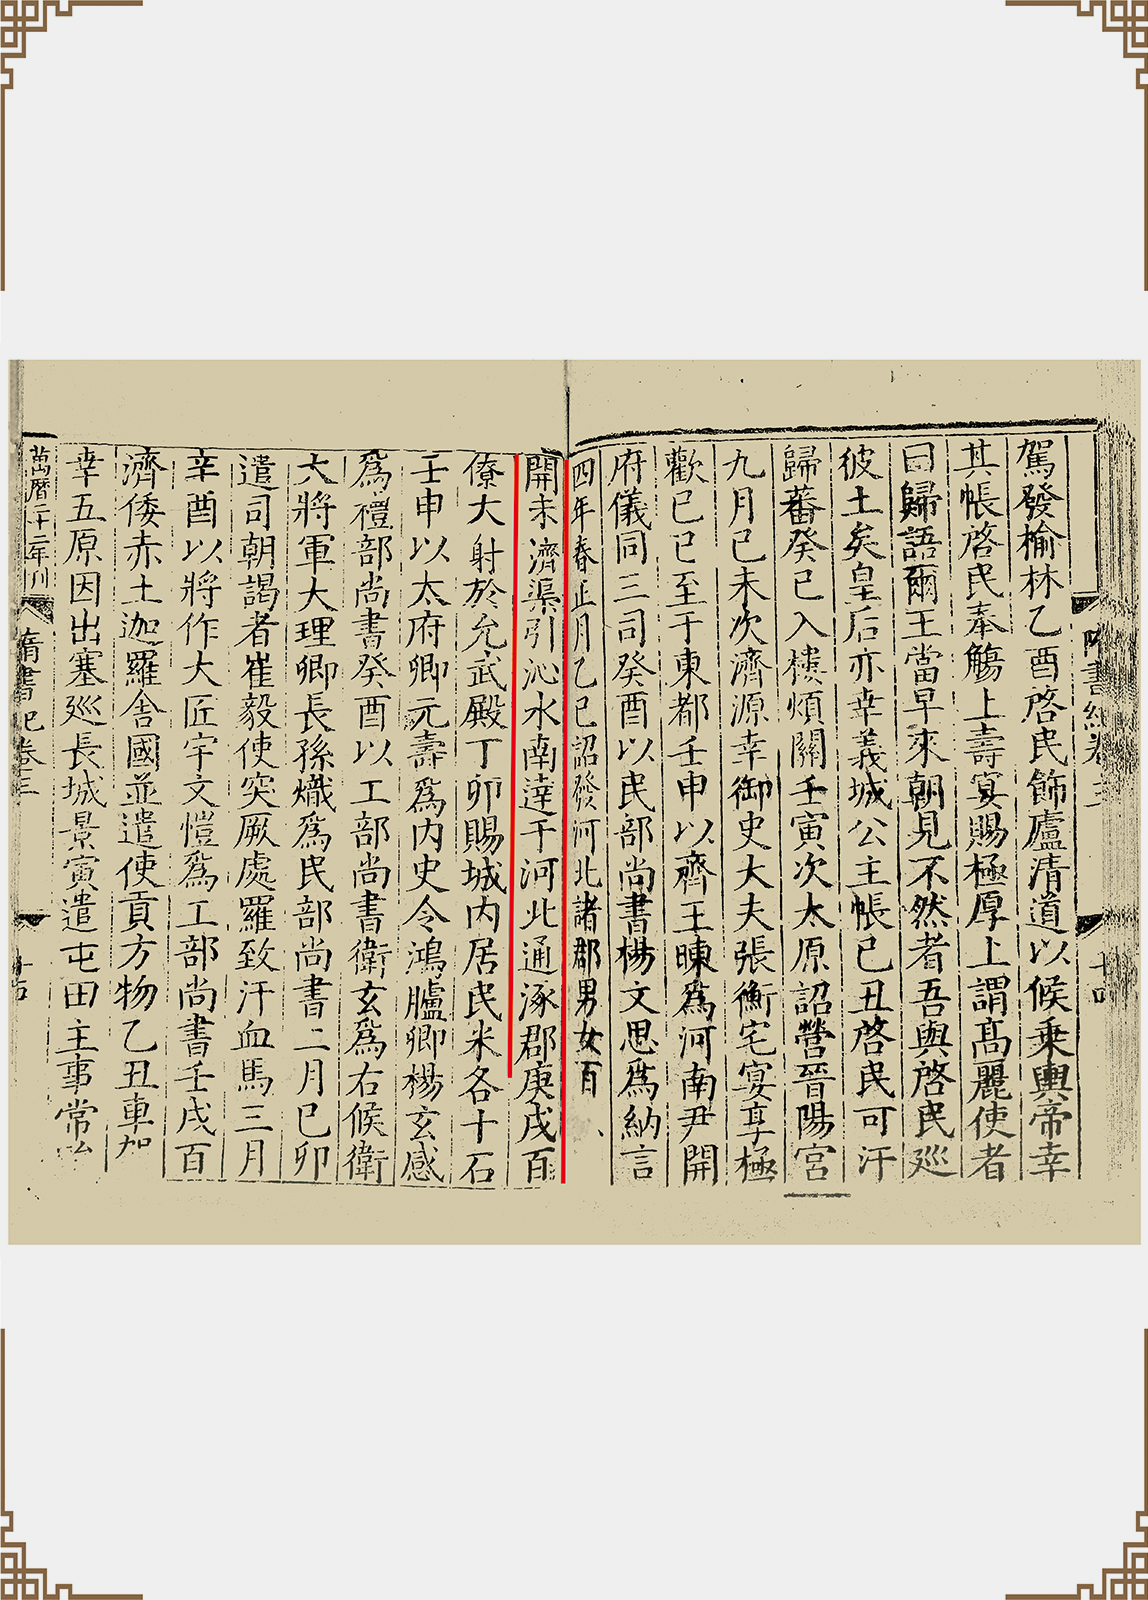 隋書紀卷三
十四
駕發榆林乙酉啓民飾廬清道以候乘輿帝幸
其帳啓民奉觴上壽宴賜極厚上謂髙麗使者
曰歸語爾王當早來朝見不然者吾與啓民廵
彼土矣皇后亦幸義城公主帳巳丑啓民可汗
歸蕃癸巳入樓煩關壬寅次太原詔營晉陽宮
九月巳未次濟源幸御史大夫張衡宅宴享極
歡巳巳至于東都壬申以齊王暕爲河南尹開
府儀同三司癸酉以民部尚書楊文思爲納言
四年春正月乙巳詔發河北諸郡男女百
開未濟渠引沁水南逹于河北通涿郡庚戌百
僚大射於允武殿丁卯賜城内居民米各十石
壬申以太府卿元壽爲内史令鴻臚卿楊玄感
爲禮部尚書癸酉以工部尚書衛玄爲右候衛
大將軍大理卿長孫熾爲民部尚書二月巳卯
遣司朝謁者崔毅使突厥處羅致汗血馬三月
辛酉以將作大匠宇文愷爲工部尚書壬戌百
濟倭赤土迦羅舎國並遣使貢方物乙丑車駕
幸五原因出塞廵長城景寅遣屯田主事常
萬曆二十二年刊
隋書紀卷三
十五